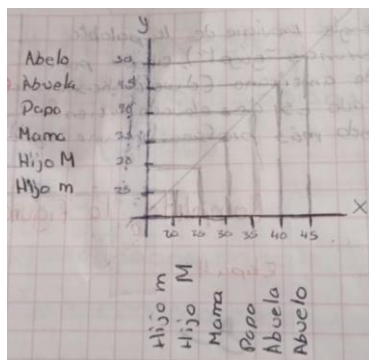 y
Abelo 50
Abuela 45
Papa 40
Mama 35
Hijo M 30
Hijo m 25
X
20 25 30 35 40 45
Hijo m
Hijo M
Mama
Papa
Abuela
Abuelo